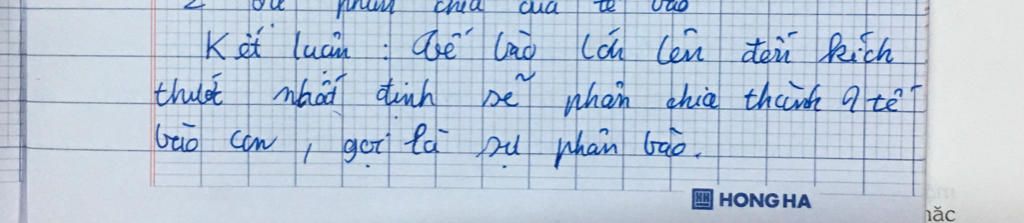 2 sự phân chia của tế bào
Kết luận : Tế bào lớn lên đến kích
thước nhất định sẽ phân chia thành 2 tế
bào con , gọi là sự phân bào.
HH HONG HA
hắc